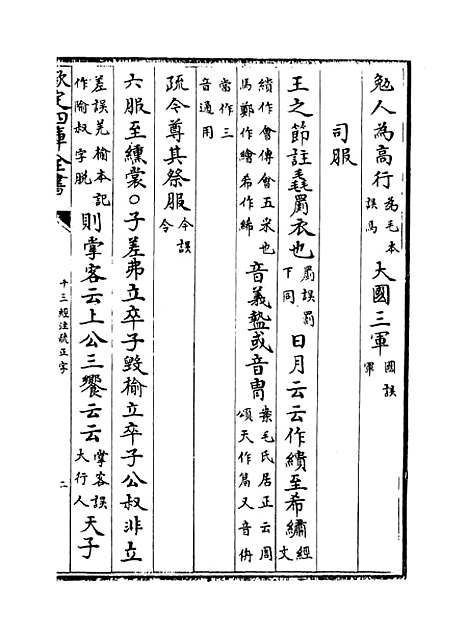 勉人為高行為毛本誤馬大國三軍國誤
司服
王之節註毳罽衣也罽誤罰下同日月云云作繢至希繡經文
繢作會傳會五采也馬鄭作繪希作絺音義盩或音冑案毛氏居正云周頌天作篇又音冉
當作三音通用
疏令尊其祭服令誤今
六服至纁裳○子差弗立卒子毀榆立卒子公叔非立
差誤羌榆本記作隃叔字脫則掌客云上公三饗云云掌客誤大行人天子
欽定四庫全書
十三經注疏正字
二